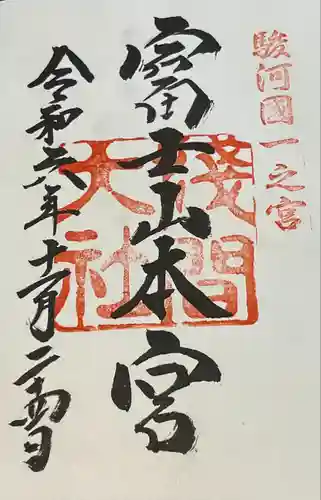 駿河國一之宮
富士山本宮
淺間大社
令和六年十一月二十四日